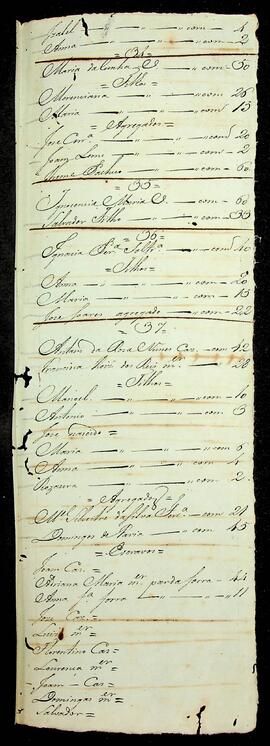 Izabel — " — " — com — 4
Anna — " — " — com — 2
= 34 =
Maria da Cunha V. — " — com — 50
= Filhos =
— " — " — com — 26
Maria — " — " — com — 15
= Agregados =
Joze Corr.ª — " — " — com — 20
Joam Leme — " — " — com — 2
Pacheco — " — com — 60
= 35 =
Innocencia Maria V. — com — 60
Salvador Filho — " — com — 35
= 36 =
Ignacia Fer.ª Solt.ª — com — 40
= Filhos =
Anna — " — " — com — 20
Maria — " — " — com — 15
Joze Soares agregado — com — 22
= 37 =
Antam da Roza Nunes Caz. — com — 42
Francisca m.er — com — 28
= Filhos =
Manoel — " — " — com — 10
Antonio — " — " — com — 3
Joze
Maria — " — " — com — 6
Anna — " — " — com — 4
Rozaura — " — " — com — 2
= Agregados =
M.el Silvestre da Silva — com — 21
Domingos de Faria — " — com — 45
= Escravos =
Joam Caz.
Ariana Maria m.er parda forra — 44
Anna f.ª forra — " — " — 11
Joze Caz. =
Luiza m.er =
Florentino Caz =
Lourença m.er =
Joam — Caz =
Domingas m.er =
Salvador =